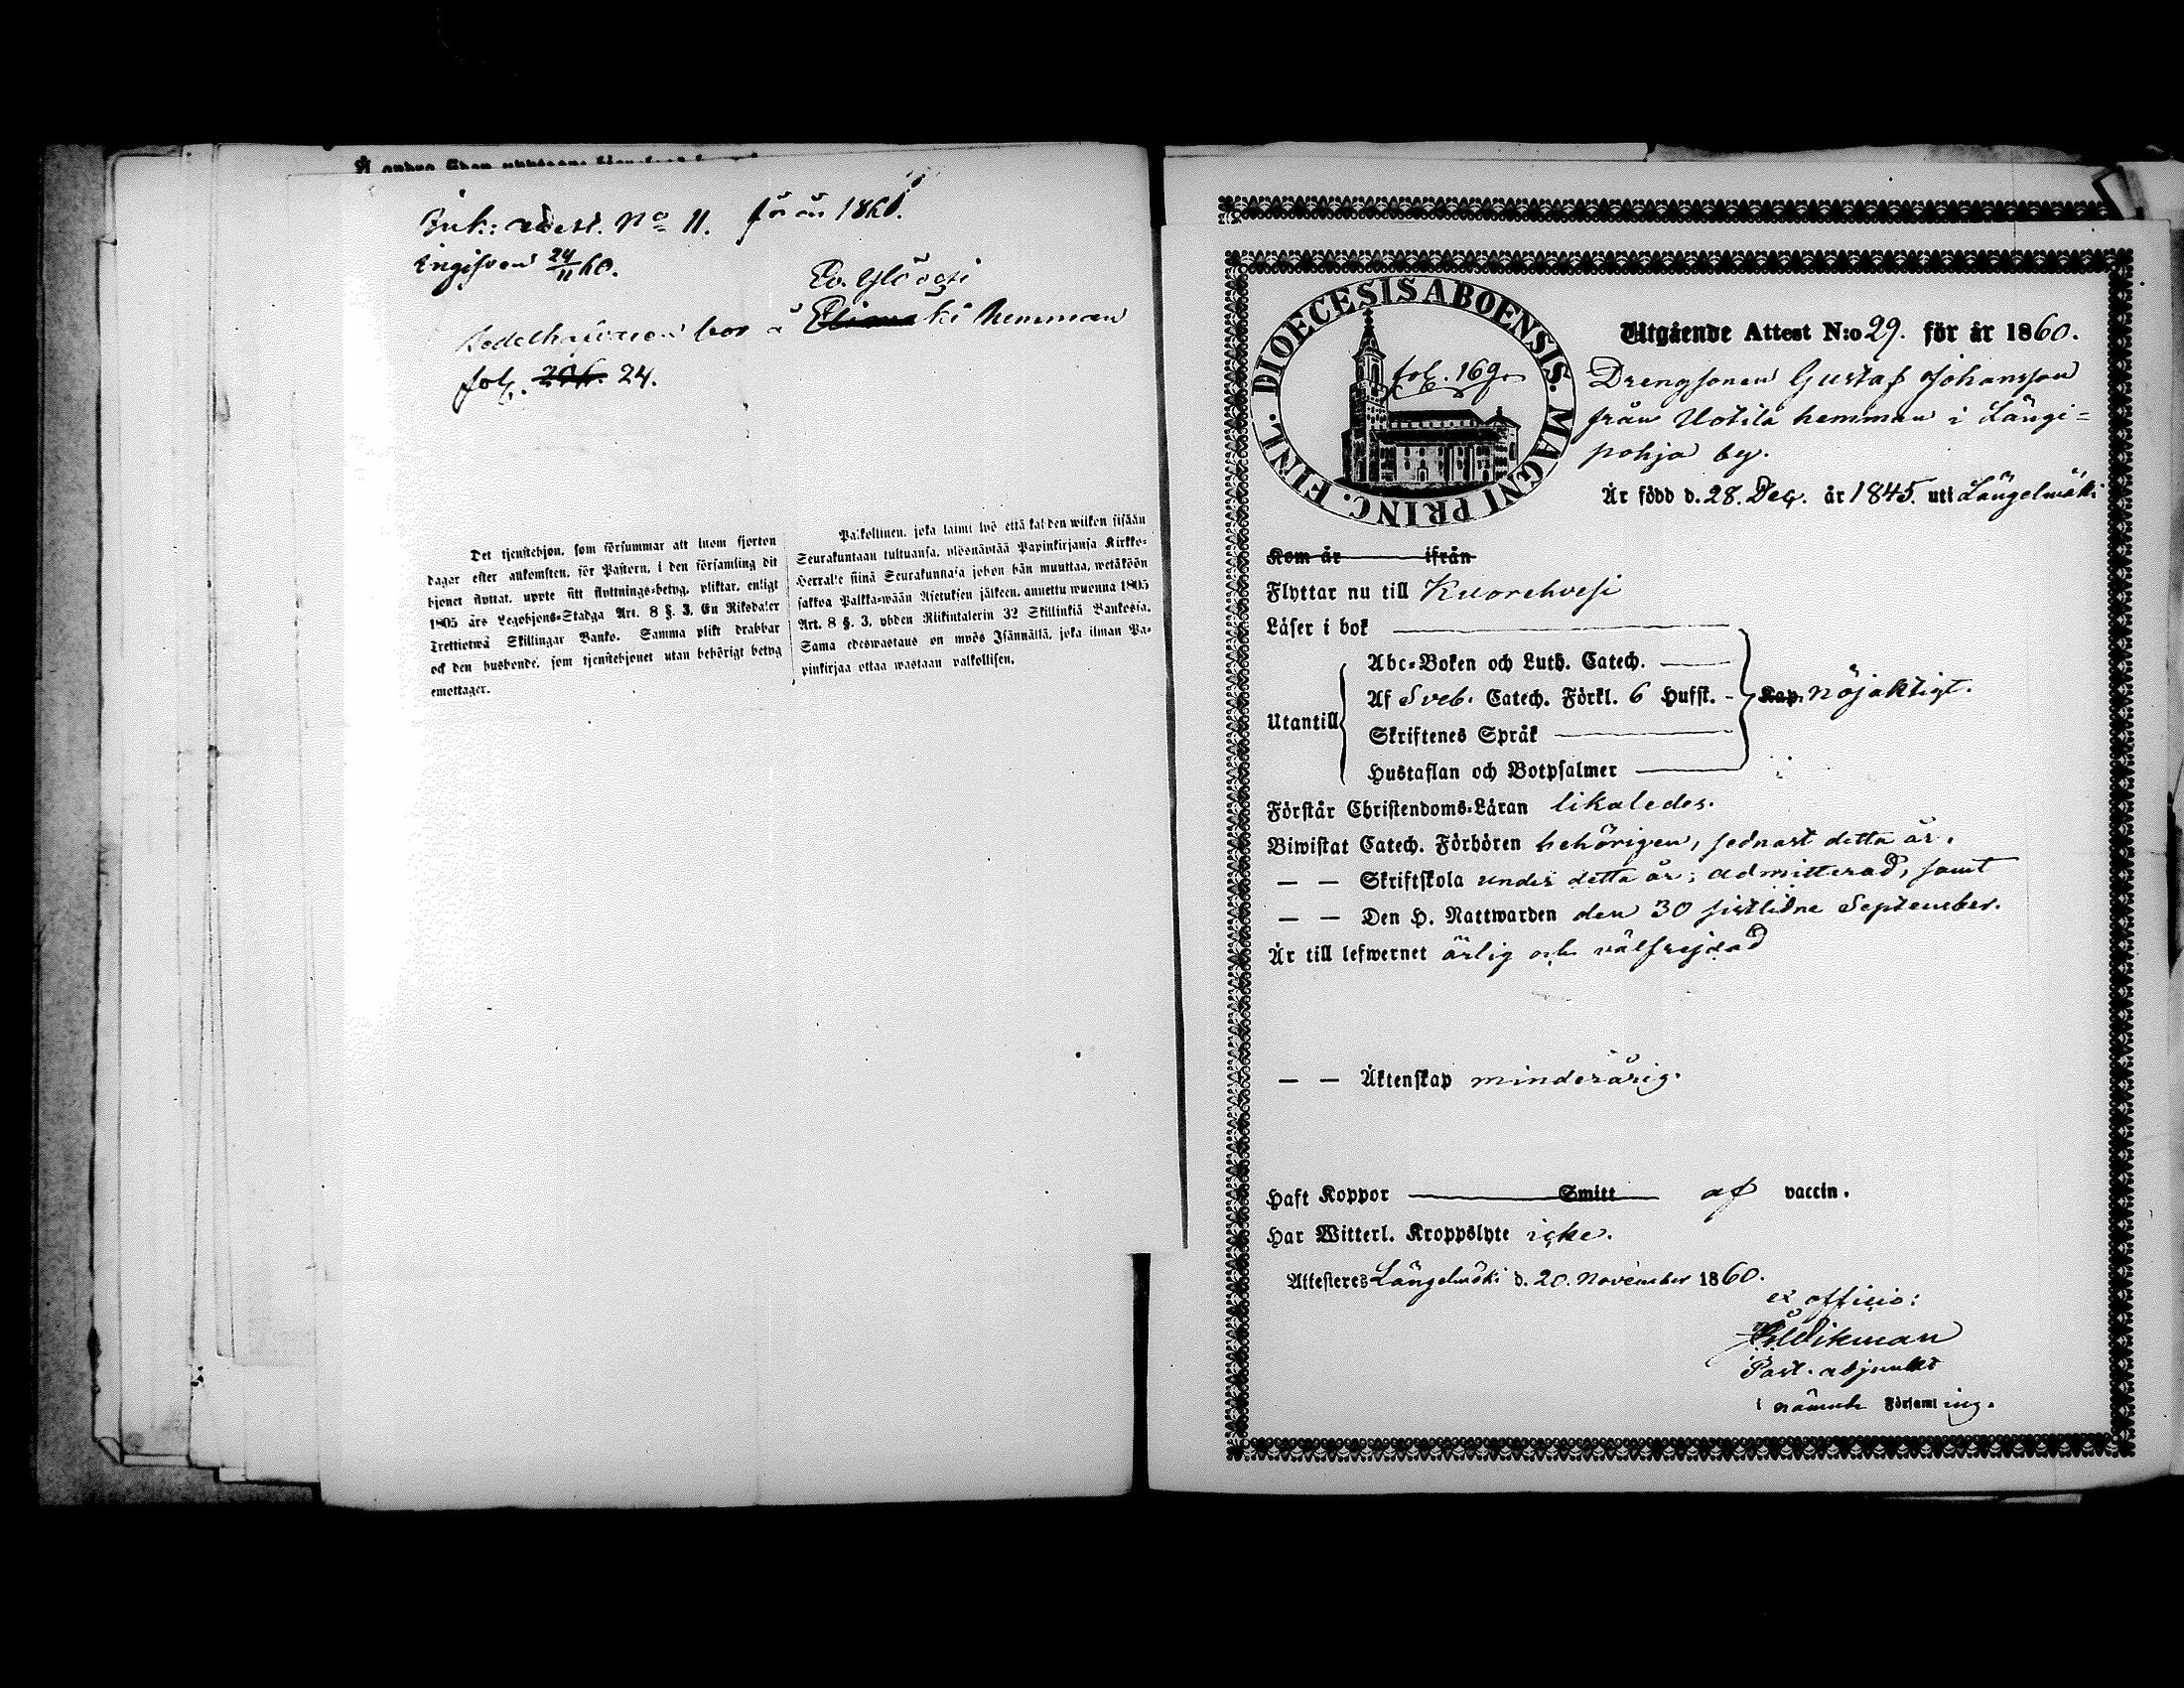 Ink: attest. No 11. för år 1861.
Ingifven 24/11 60.
Ylöösi
bor å ki hemman
fol. 24.
Det tjenstehjon, som försummar att inom fjorton
dagar efter ankomsten, för Pastorn, i den församling dit
hjonet flyttat, uppte sitt flyttnings-betyg, pliktar, enligt
1805 års Legohjons-Stadga Art. 8 §. 3. En Riksdaler
Trettiotwå Skillingar Banko. Samma plikt drabbar
ock den husbonde, som tjenstehjonet utan behörigt betyg
emottager.
Palkollinen, joka laimi lyö että kahden wiikon sisään
Seurakuntaan tultuansa, ylösnäyttää Papinkirjansa Kirkko-
Herralle siinä Seurakunnasa johon hän muuttaa, wetäköön
sakkoa Palkka-wään Asetuksen jälkeen, annettu wuonna 1805
Art. 8 §. 3, yhden Riikintalerin 32 Skillinkiä Bankossa.
Sama edeswastaus on myös Isännällä, joka ilman Pa-
pinkirjaa ottaa wastaan palkollisen.
DIOECESIS ABOENSIS. MAGNI PRINC. FINL.
fol. 169.
Utgående Attest N:o 29. för år 1860.
Drengsonen Gustaf Johansson
från Uotila hemman i Längi=
pohja by.
Är född d. 28. Dec. år 1845. uti Längelmäki
Kom år ifrån
Flyttar nu till Kuorehvesi
Läser i bok
Abc-Boken och Luth. Catech.
Utantill
Af Sveb. Catech. Förkl. 6 Hufst. - Kap. nöjaktigt.
Skriftenes Språk
Hustaflan och Botpsalmer
Förstår Christendoms-Läran likaledes.
Biwistat Catech. Förhören behörigen, sednast detta år.
— — Skriftskola under detta år; admitterad, samt
— — Den H. Nattwarden den 30 sistlidne September.
Är till lefwernet ärlig och välfrejdad
— — Äktenskap minderårig.
Haft Koppor Smitt af vaccin.
Har Witterl. Kroppslyte icke.
Attesteres Längelmäki d. 20. November 1860.
ex officio:
Wikman
Past. adjunkt
i nämnde Församling.